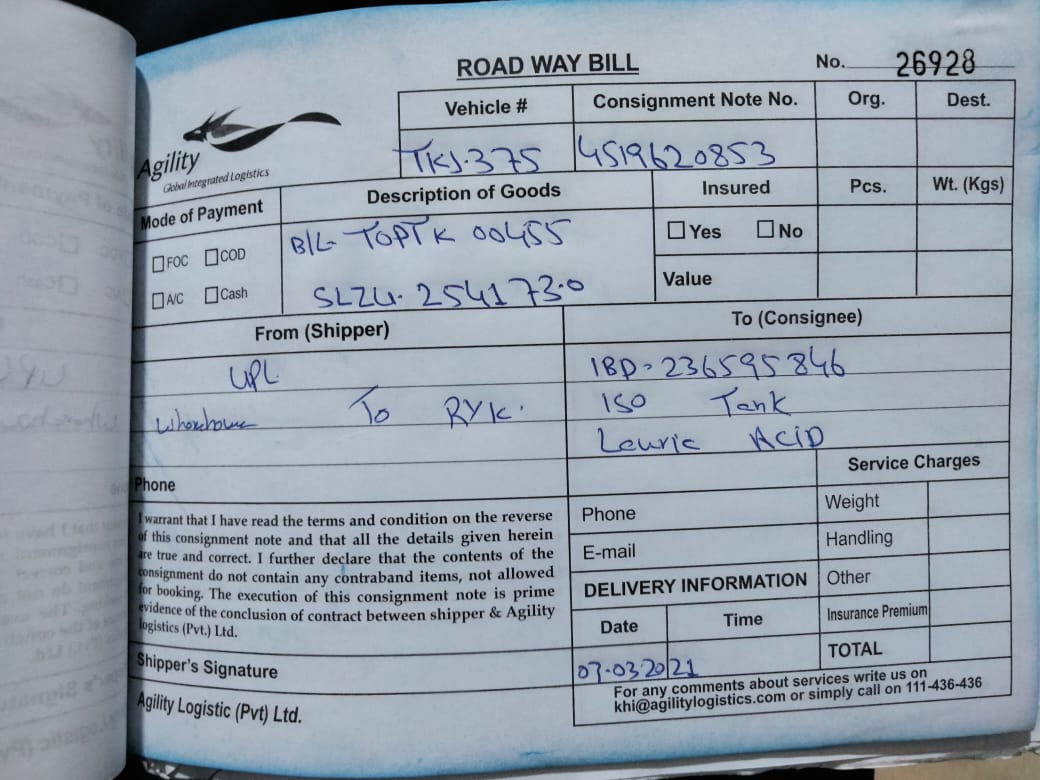 ROAD WAY BILL
No. 26928
Agility
Global Integrated Logistics
Vehicle #
Consignment Note No.
Org.
Dest.
TKJ-375
4519620853
Mode of Payment
Description of Goods
Insured
Pcs.
Wt. (Kgs)
FOC
COD
B/L- TOPTK 00455
Yes
No
A/C
Cash
SLZU. 254173-0
Value
From (Shipper)
To (Consignee)
UPL
IBD-236595846
To RYK.
ISO Tank
Lauric ACID
Phone
Service Charges
I warrant that I have read the terms and condition on the reverse
of this consignment note and that all the details given herein
are true and correct. I further declare that the contents of the
consignment do not contain any contraband items, not allowed
for booking. The execution of this consignment note is prime
evidence of the conclusion of contract between shipper & Agility
logistics (Pvt.) Ltd.
Phone
Weight
E-mail
Handling
DELIVERY INFORMATION
Other
Date
Time
Insurance Premium
TOTAL
07-03-2021
Shipper's Signature
Agility Logistic (Pvt) Ltd.
For any comments about services write us on
khi@agilitylogistics.com or simply call on 111-436-436